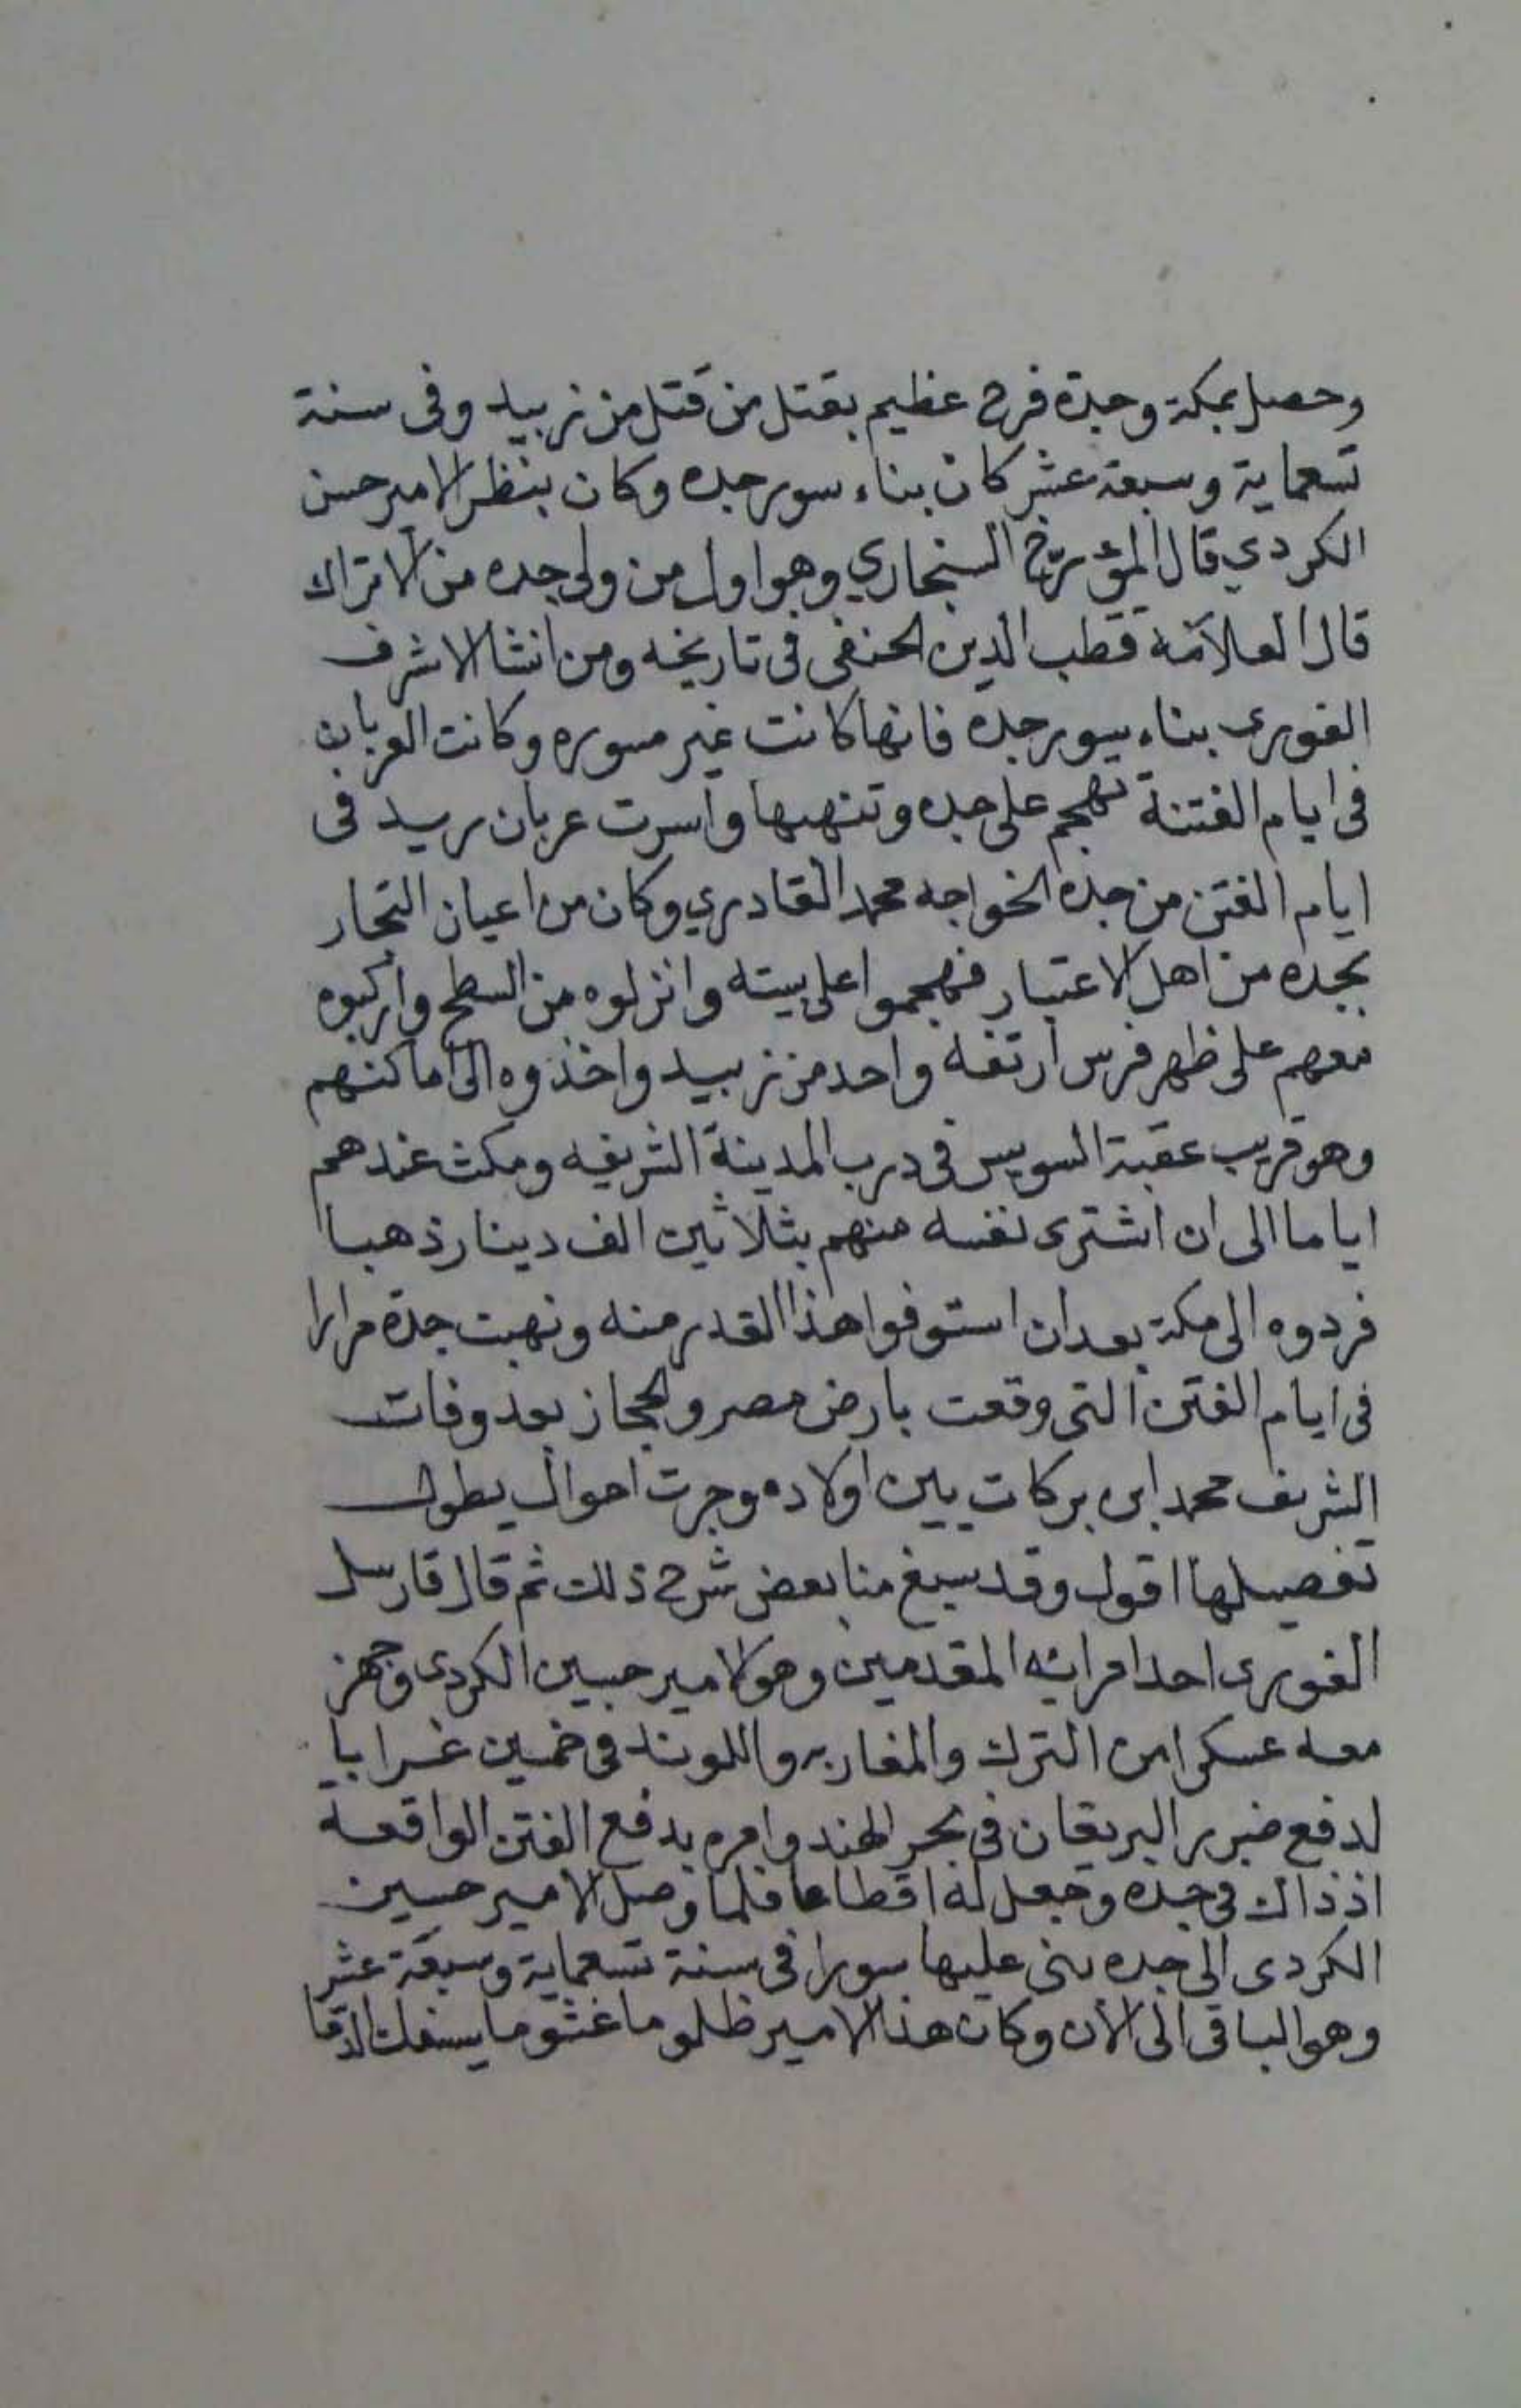 وحصل بمكة وجدة فرح عظيم بقتل من قتل من زبيد وفى سنة
تسعماية وسبعة عشر كان بناء سور جده وكان بنظر الامير حسن
الكردي قال المؤرّخ السنجاري وهو اول من ولى جده من الاتراك
قال العلاّمة قطب الدين الحنفى فى تاريخه ومن انشا الاشرف
الغورى بناء سور جده فانها كانت غير مسوره وكانت العربان
فى ايام الفتنة تهجم على جده وتنهبها وأسرت عربان زبيد فى
ايام الفتن من جده الخواجه محمد القادري وكان من اعيان التجار
بجده من اهل الاعتبار فهجموا على بيته وانزلوه من السطح وأركبوه
معهم على ظهر فرس ارتفه واحد من زبيد واخذوه الى اماكنهم
وهو قريب عقبة السويس فى درب المدينة الشريفه ومكث عندهم
اياما الى ان اشترى نفسه منهم بثلاثين الف دينار ذهبا
فردوه الى مكة بعد ان استوفوا هذا القدر منه ونهبت جدة مرارا
فى ايام الفتن التى وقعت بارض مصر والحجاز بعد وفات
الشريف محمد ابن بركات بين اولاده وجرت احوال يطول
تفصيلها اقول وقد سبغ منا بعض شرح ذلك ثم قال فارسل
الغورى احد امرائه المقدمين وهو الامير حسين الكردى وجهز
معه عسكرا من الترك والمغاربه واللوند فى خمسين غرابا
لدفع ضرر البريقان فى بحر الهند وامره بدفع الفتن الواقعة
اذ ذاك فى جده وجعل له اقطاعا فلما وصل الامير حسين
الكردى الى جده بنى عليها سورا فى سنة تسعماية وسبعة عشر
وهو الباقى الى الآن وكان هذا الامير ظلوما غشوما يسفك الدما